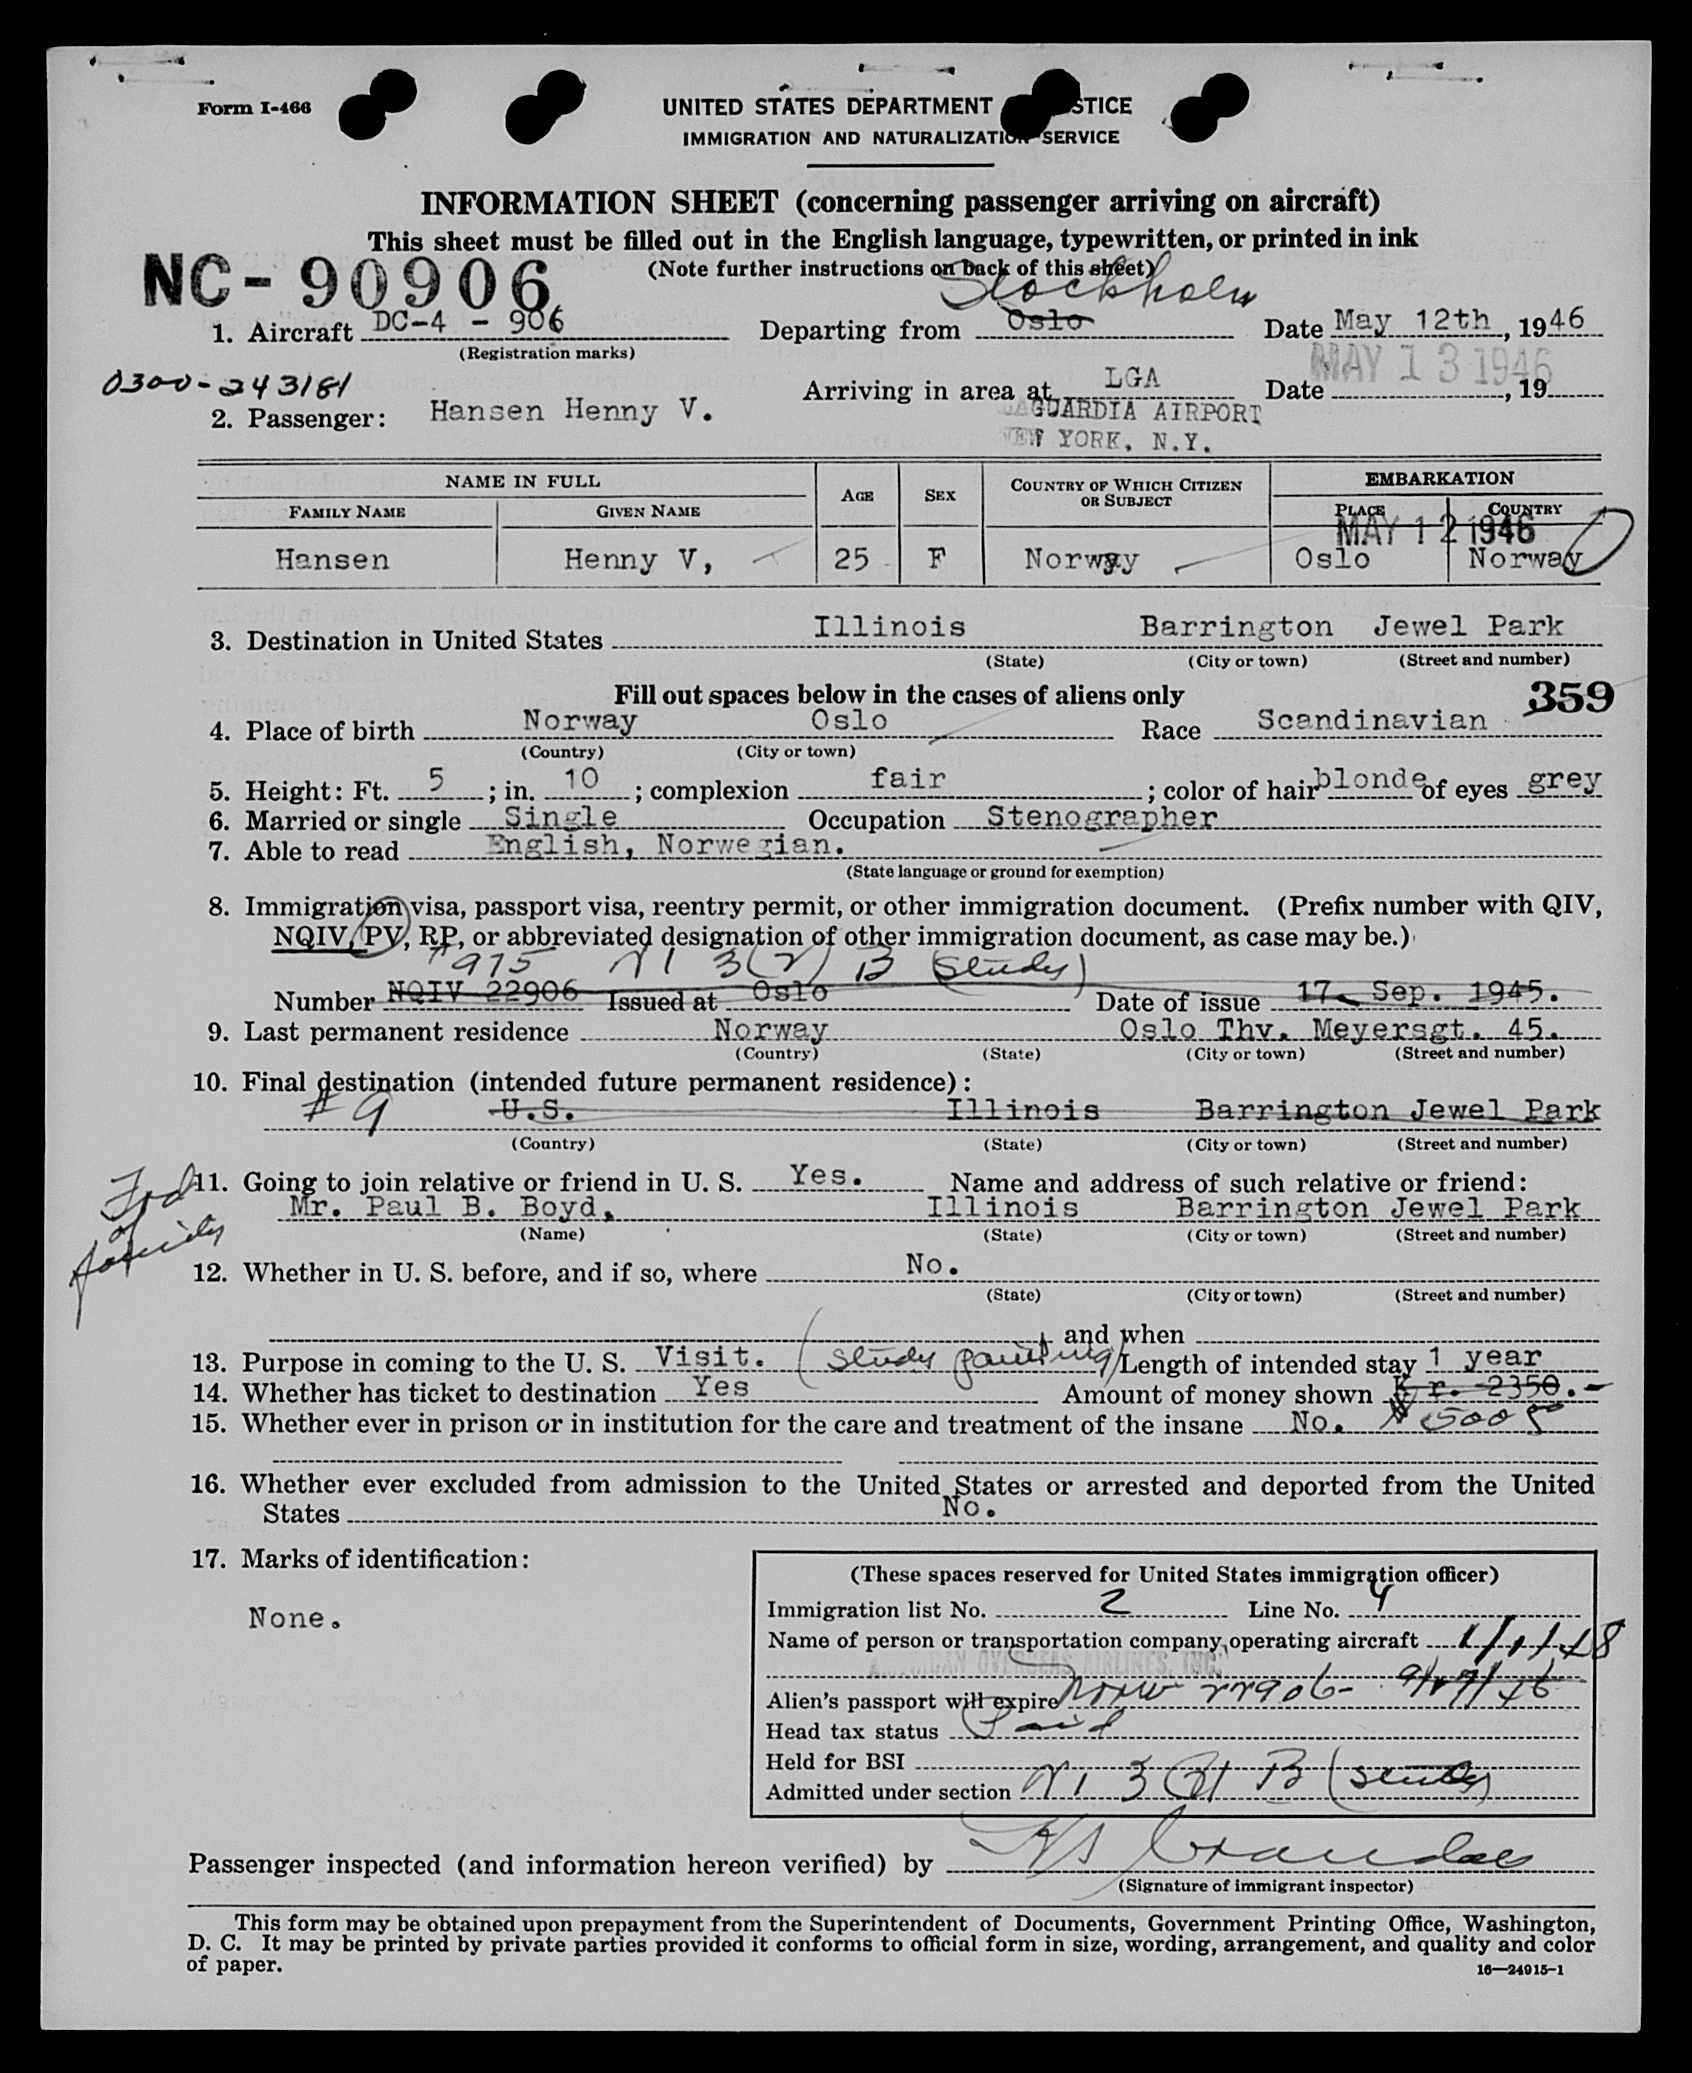 Form I-466
UNITED STATES DEPARTMENT STICE
IMMIGRATION AND NATURALIZATION SERVICE
INFORMATION SHEET (concerning passenger arriving on aircraft)
This sheet must be filled out in the English language, typewritten, or printed in ink
(Note further instructions on back of this sheet)
NC-90906
Stockholm
1. Aircraft DC-4 - 906 Departing from Oslo Date May 12th, 1946
(Registration marks)
MAY 13 1946
0300-243181
Arriving in area at LGA Date , 19
2. Passenger: Hansen Henny V.
GUARDIA AIRPORT
NEW YORK, N.Y.
NAME IN FULL AGE SEX COUNTRY OF WHICH CITIZEN OR SUBJECT EMBARKATION
FAMILY NAME GIVEN NAME PLACE COUNTRY
MAY 12 1946
Hansen Henny V, 25 F Norway Oslo Norway
3. Destination in United States Illinois Barrington Jewel Park
(State) (City or town) (Street and number)
Fill out spaces below in the cases of aliens only 359
4. Place of birth Norway Oslo Race Scandinavian
(Country) (City or town)
5. Height: Ft. 5; in. 10; complexion fair; color of hair blonde of eyes grey
6. Married or single Single Occupation Stenographer
7. Able to read English, Norwegian.
(State language or ground for exemption)
8. Immigration visa, passport visa, reentry permit, or other immigration document. (Prefix number with QIV,
NQIV, PV, RP, or abbreviated designation of other immigration document, as case may be.)
975 3(2) B (Study)
Number NQIV 22906 Issued at Oslo Date of issue 17. Sep. 1945.
9. Last permanent residence Norway Oslo Thv. Meyersgt. 45.
(Country) (State) (City or town) (Street and number)
10. Final destination (intended future permanent residence):
#9 U.S. Illinois Barrington Jewel Park
(Country) (State) (City or town) (Street and number)
11. Going to join relative or friend in U. S. Yes. Name and address of such relative or friend:
Frd of family
Mr. Paul B. Boyd, Illinois Barrington Jewel Park
(Name) (State) (City or town) (Street and number)
12. Whether in U. S. before, and if so, where No.
(State) (City or town) (Street and number)
and when
13. Purpose in coming to the U. S. Visit. (study painting) Length of intended stay 1 year
14. Whether has ticket to destination Yes Amount of money shown Kr. 2350.-
15. Whether ever in prison or in institution for the care and treatment of the insane No. $500
16. Whether ever excluded from admission to the United States or arrested and deported from the United
States No.
17. Marks of identification:
None.
(These spaces reserved for United States immigration officer)
Immigration list No. 2 Line No. 4
Name of person or transportation company operating aircraft 1/1/48
OVERSEAS AIRLINES, INC.
Alien's passport will expire Norw 22906
Head tax status Paid
Held for BSI
Admitted under section 3(2) B (study)
Passenger inspected (and information hereon verified) by
(Signature of immigrant inspector)
This form may be obtained upon prepayment from the Superintendent of Documents, Government Printing Office, Washington,
D. C. It may be printed by private parties provided it conforms to official form in size, wording, arrangement, and quality and color
of paper.
16—24915-1